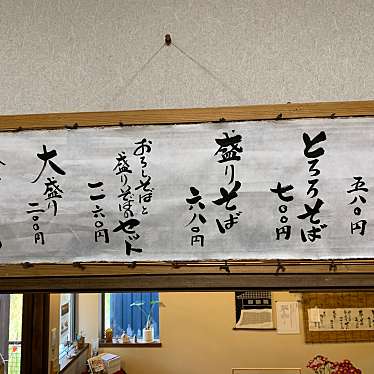 五八〇円
とろろそば
七〇〇円
盛りそば
六八〇円
おろしそばと
盛りそばのセット
一一六〇円
大盛り
二〇〇円